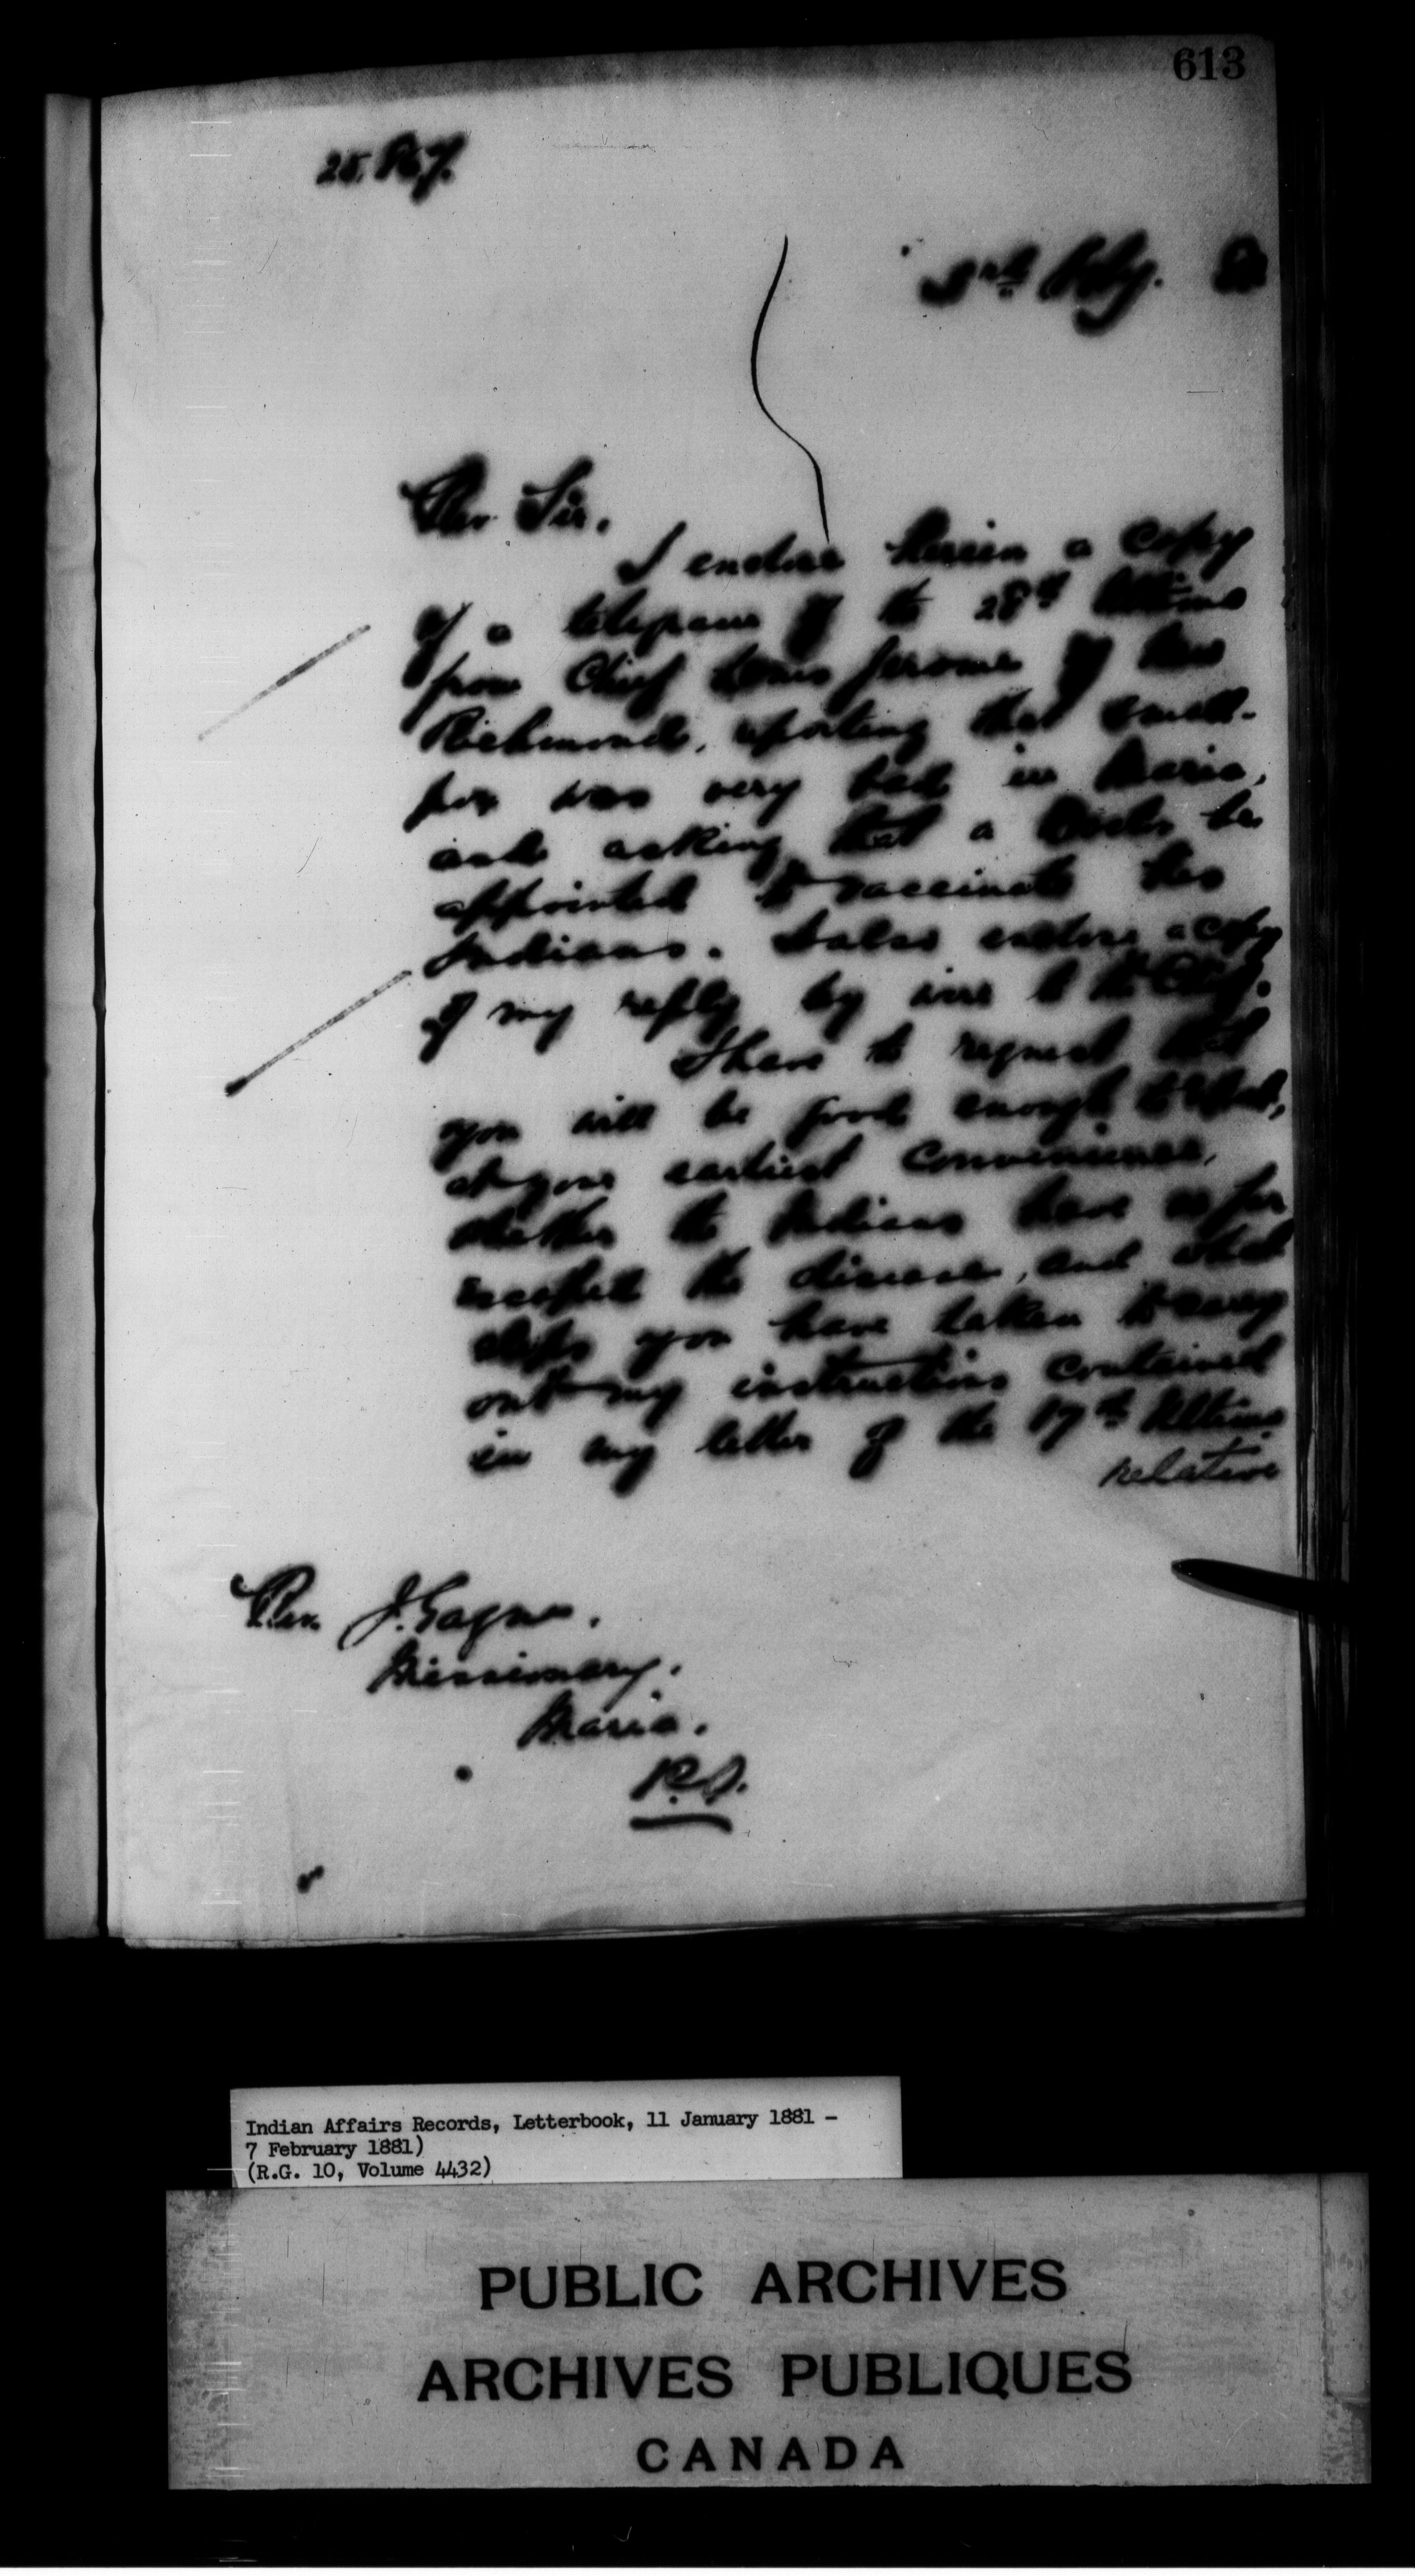 613
25.867.
3rd Feby. 81
Rev. Sir.
I enclose herein a copy
of a telegram of the 28th Ultimo
from Chief Louis Jerome of New
Richmond, reporting that small-
pox was very bad in Maria,
and asking that a Doctor be
appointed to vaccinate his
Indians. I also enclose a copy
of my reply by wire to the Chief.
I have to request that
you will be good enough to
at your earliest convenience,
whether the Indians have so far
escaped the disease, and what
steps you have taken to carry
out my instructions contained
in my letter of the 17th Ultimo
relative
Rev. J. Gagne.
Missionary.
Maria.
P.Q.
Indian Affairs Records, Letterbook, 11 January 1881 -
7 February 1881)
(R.G. 10, Volume 4432)
PUBLIC ARCHIVES
ARCHIVES PUBLIQUES
CANADA